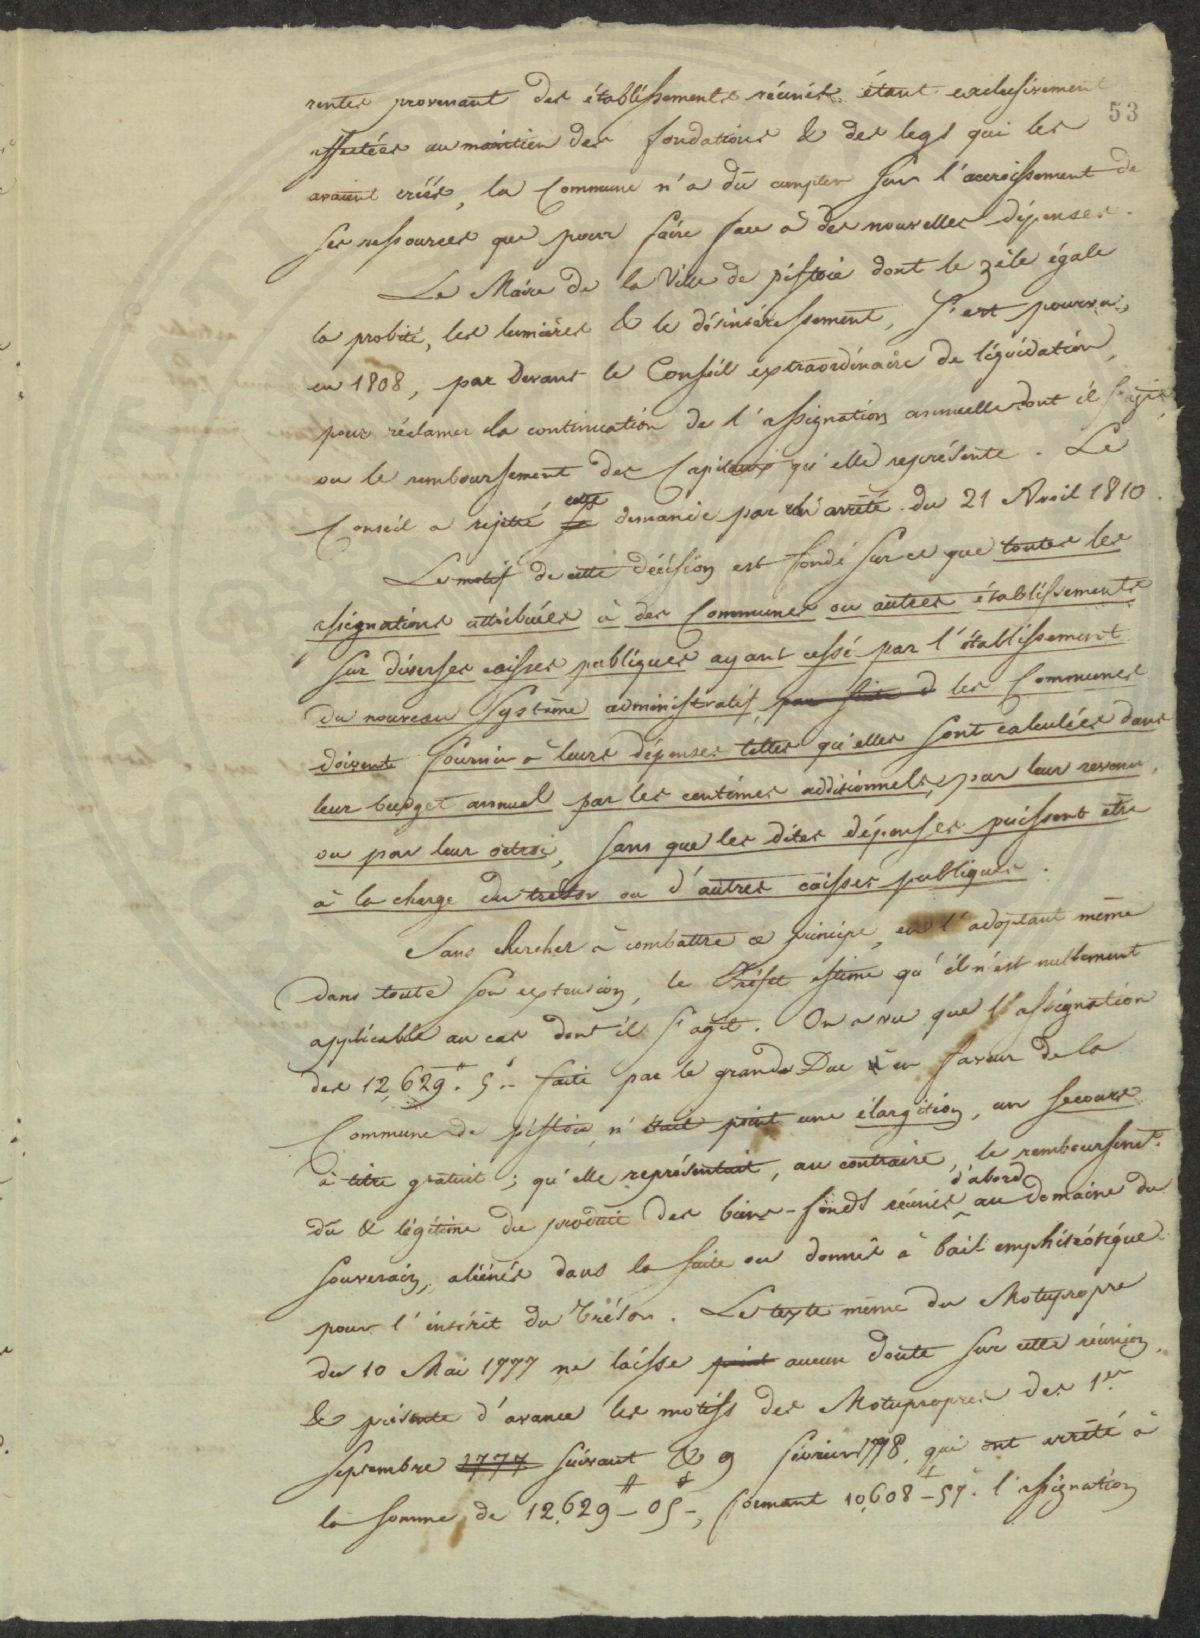 53
rentes provenant des établissements réunis étant exclusivement
affectées au maintien des fondations & des legs qui les
avaient créés, la Commune n'a dû compter sur l'accroissement de
ses ressources que pour faire face à des nouvelles dépenses.
Le Maire de la Ville de pistoie dont le zèle égale
la probité, les lumières & le désintéressement, s'est pourvu,
en 1808, par devant le Conseil extraordinaire de liquidation,
pour réclamer la continuation de l'assignation annuelle dont il s'agit
ou le remboursement des Capitaux qu'elle représente. Le
Conseil a rejetté cette demande par un arrêté du 21 Avril 1810.
Le motif de cette décision est fondé sur ce que toutes les
assignations attribuées à des Communes ou autres établissements
sur diverses caisses publiques ayant cessé par l'établissement
du nouveau système administratif, par suite d les Communes
doivent fournir à leurs dépenses telles qu'elles sont calculées dans
leur budget annuel par les centimes additionnels, par leur revenu,
ou par leur octroi, sans que les dites dépenses puissent être
à la charge du trésor ou d'autres caisses publiques.
Sans chercher à combattre ce principe, en l'adoptant même
dans toute son extension, le Préfet estime qu'il n'est nullement
applicable au cas dont il s'agit. On a vu que l'assignation
des 12,629. 5. faite par le grand Duc en faveur de la
Commune de pistoie, n'était point une élargition, un secours
à titre gratuit; qu'elle représentait, au contraire, le remboursent.
dû & légitime du produit des biens-fonds réunis d'abord au domaine du
Souverain, aliénés dans la suite ou donnés à bail emphitéotique
pour l'intérêt du trésor. Le texte même du Motupropre
du 10 Mai 1777 ne laisse point aucun doute sur cette réunion,
& présente d'avance les motifs des Motupropres des 1.er
Septembre 1777 suivant & 9 février 1778, qui ont arrêté à
la somme de 12,629 - 05 -, formant 10,608 - 57. l'assignation